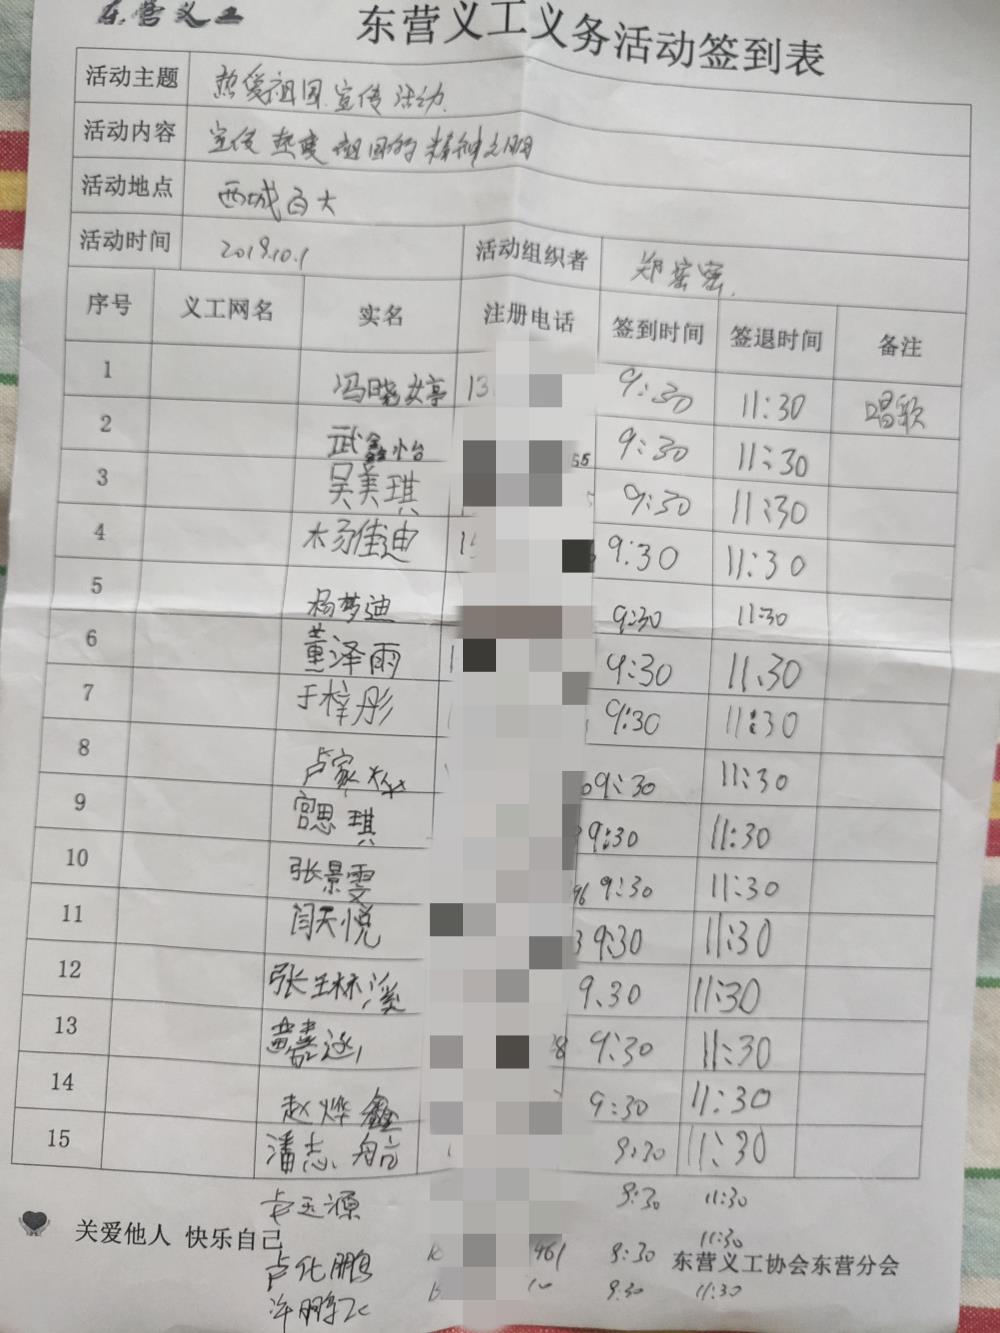 东营义工
东营义工义务活动签到表
活动主题 热爱祖国宣传活动.
活动内容 宣传热爱祖国的精神文明
活动地点 西城百大
活动时间 2019.10.1 活动组织者 郑密密.
序号 义工网名 实名 注册电话 签到时间 签退时间 备注
1 冯晓婷 13 9:30 11:30 唱歌
2 武鑫怡 55 9:30 11:30
3 吴美琪 9:30 11:30
4 杨佳迪 15 9:30 11:30
5 杨梦迪 9:30 11:30
6 董泽雨 1 9:30 11.30
7 于梓彤 9:30 11:30
8 卢家 9:30 11:30
9 宫思琪 9:30 11:30
10 张景雯 96 9:30 11:30
11 闫天悦 3 9:30 11:30
12 张玉林溪 9.30 11:30
13 8 9:30 11:30
14 赵烨鑫 9:30 11:30
15 潘志航 9:30 11:30
卢玉源 9:30 11:30
关爱他人 快乐自己
卢化鹏 461 9:30 11:30
东营义工协会东营分会
许鹏飞 10 9:30 11:30